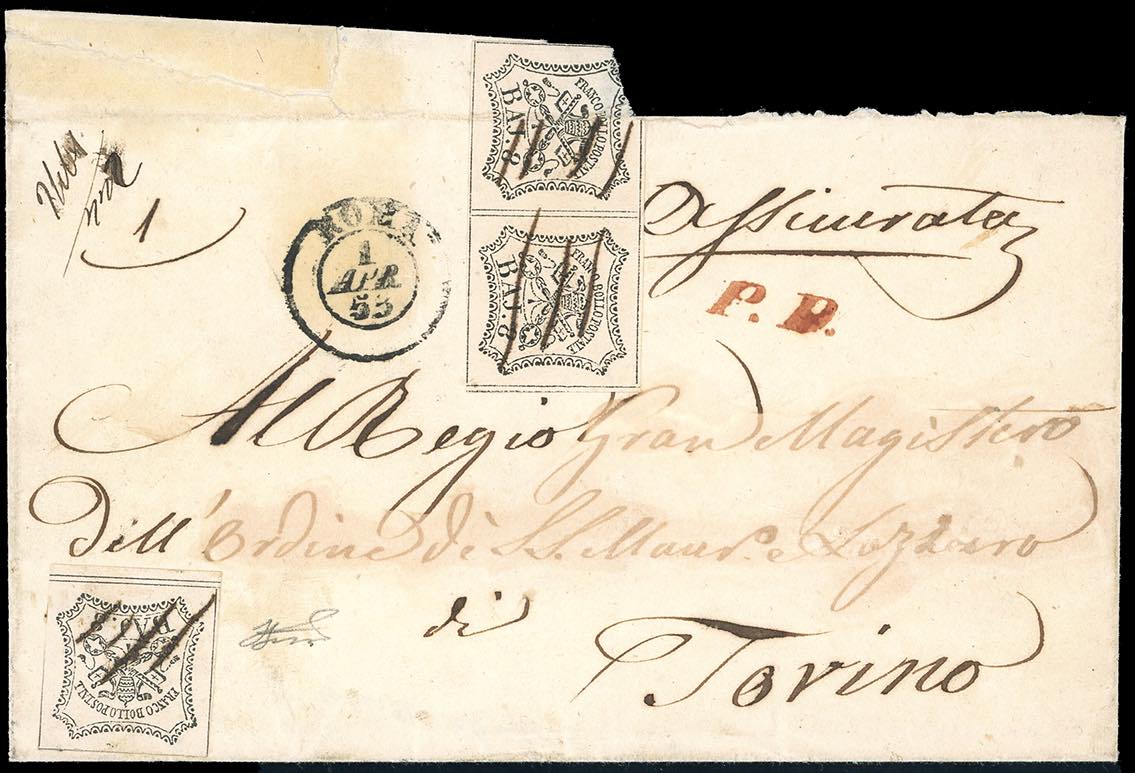 FRANCO BOLLO POSTALE
BAJ: 8
FRANCO BOLLO POSTALE
BAJ: 8
Assicurata
1
ROMA
1
APR
55
P. D.
Al Regio Gran Magistero
Dell' Ordine di S.S. Maur.o e Lazzaro
di
Torino
FRANCO BOLLO POSTALE
BAJ: 8